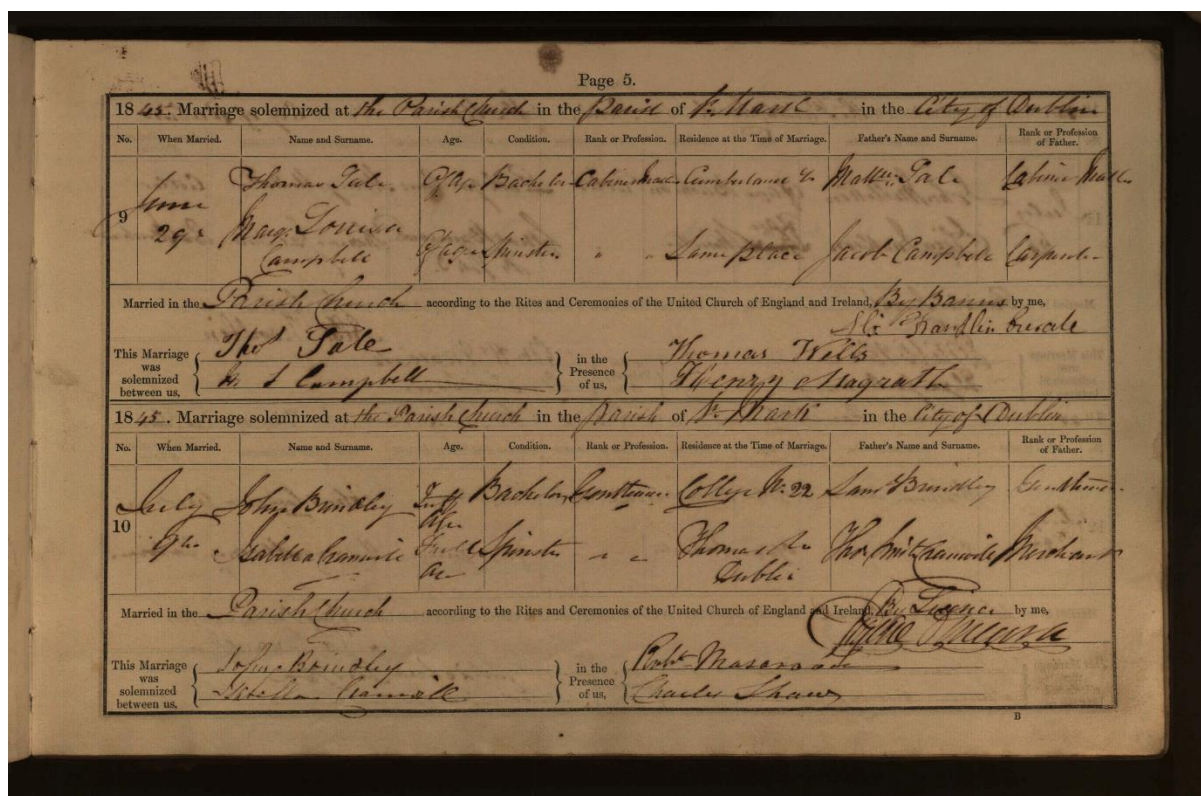 Page 5.
1845. Marriage solemnized at the Parish Church in the Parish of St. Mark in the City of Dublin
No. When Married. Name and Surname. Age. Condition. Rank or Profession. Residence at the Time of Marriage. Father's Name and Surname. Rank or Profession of Father.
9 June 29th Thomas Tate Of Age Bachelor Cabinet Cumberland St Matthew Tate Cabinet
Louisa Campbell Of age Spinster " " Same place Jacob Campbell Carpenter
Married in the Parish Church according to the Rites and Ceremonies of the United Church of England and Ireland, By Banns by me,
Curate
This Marriage was solemnized between us, Thos Tate in the Presence of us, Thomas Wells
M L Campbell Henry Magrath
1845. Marriage solemnized at the Parish Church in the Parish of St. Mark in the City of Dublin
No. When Married. Name and Surname. Age. Condition. Rank or Profession. Residence at the Time of Marriage. Father's Name and Surname. Rank or Profession of Father.
10 July 9th John Brindley Full Age Bachelor Gentleman College No. 22 Saml Brindley Gentleman
Isabella Full Age Spinster " " Thomas St Dublin Thos Merchant
Married in the Parish Church according to the Rites and Ceremonies of the United Church of England and Ireland, By Licence by me,
This Marriage was solemnized between us, John Brindley in the Presence of us, Robt
Isabella Charles Shaw
B